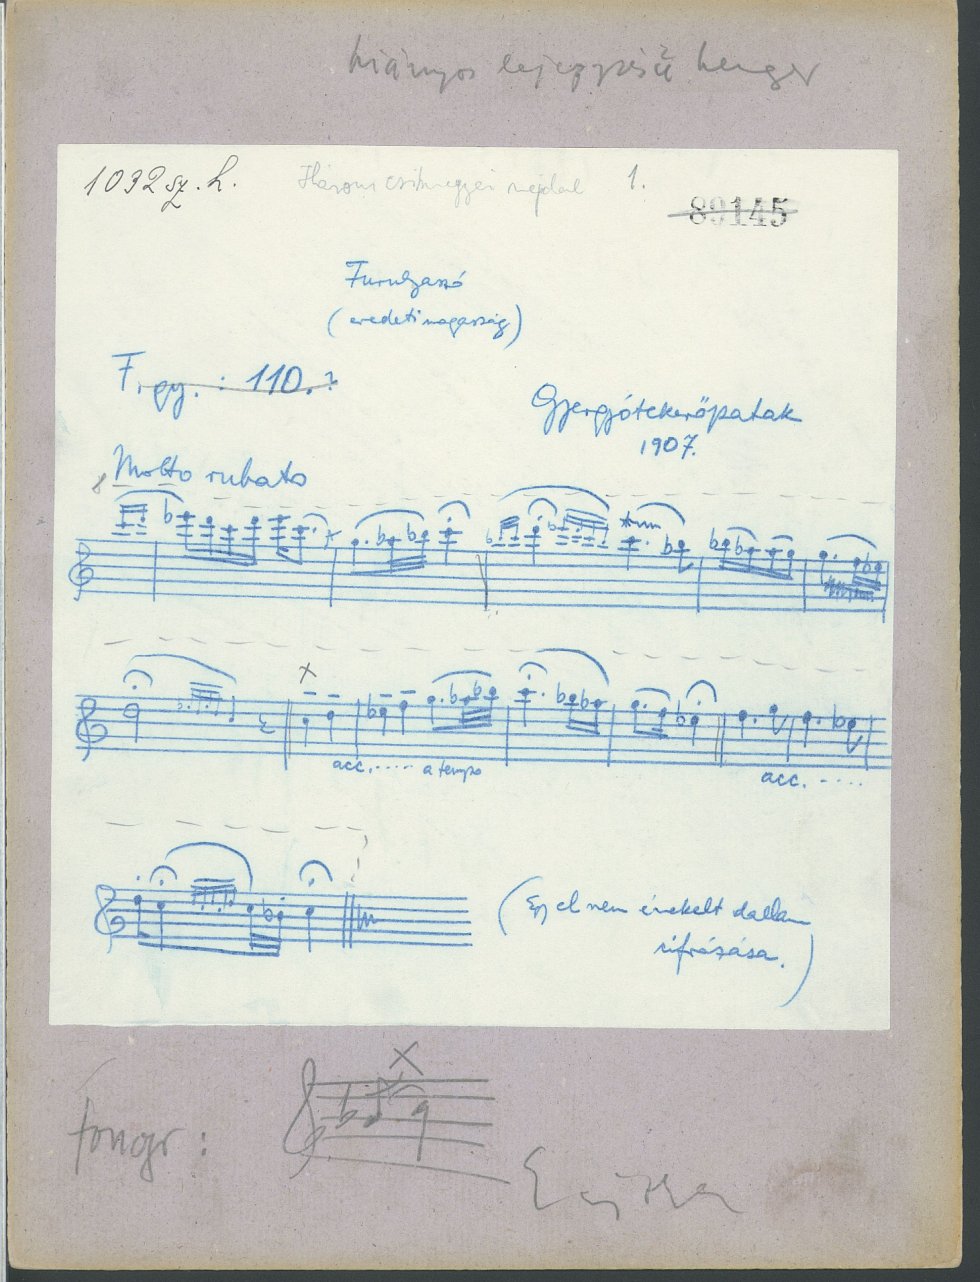 hiányos lejegyzésű henger
1032 sz. h. Három csíkmegyei népdal 1.
89145
Furulyaszó
(eredeti magasság)
F. gy. : 110.
Gyergyótekerőpatak
1907.
8 Molto rubato
acc. ..... a tempo
acc. .....
(Egy el nem énekelt dallam
cifrázása.)
fongr :